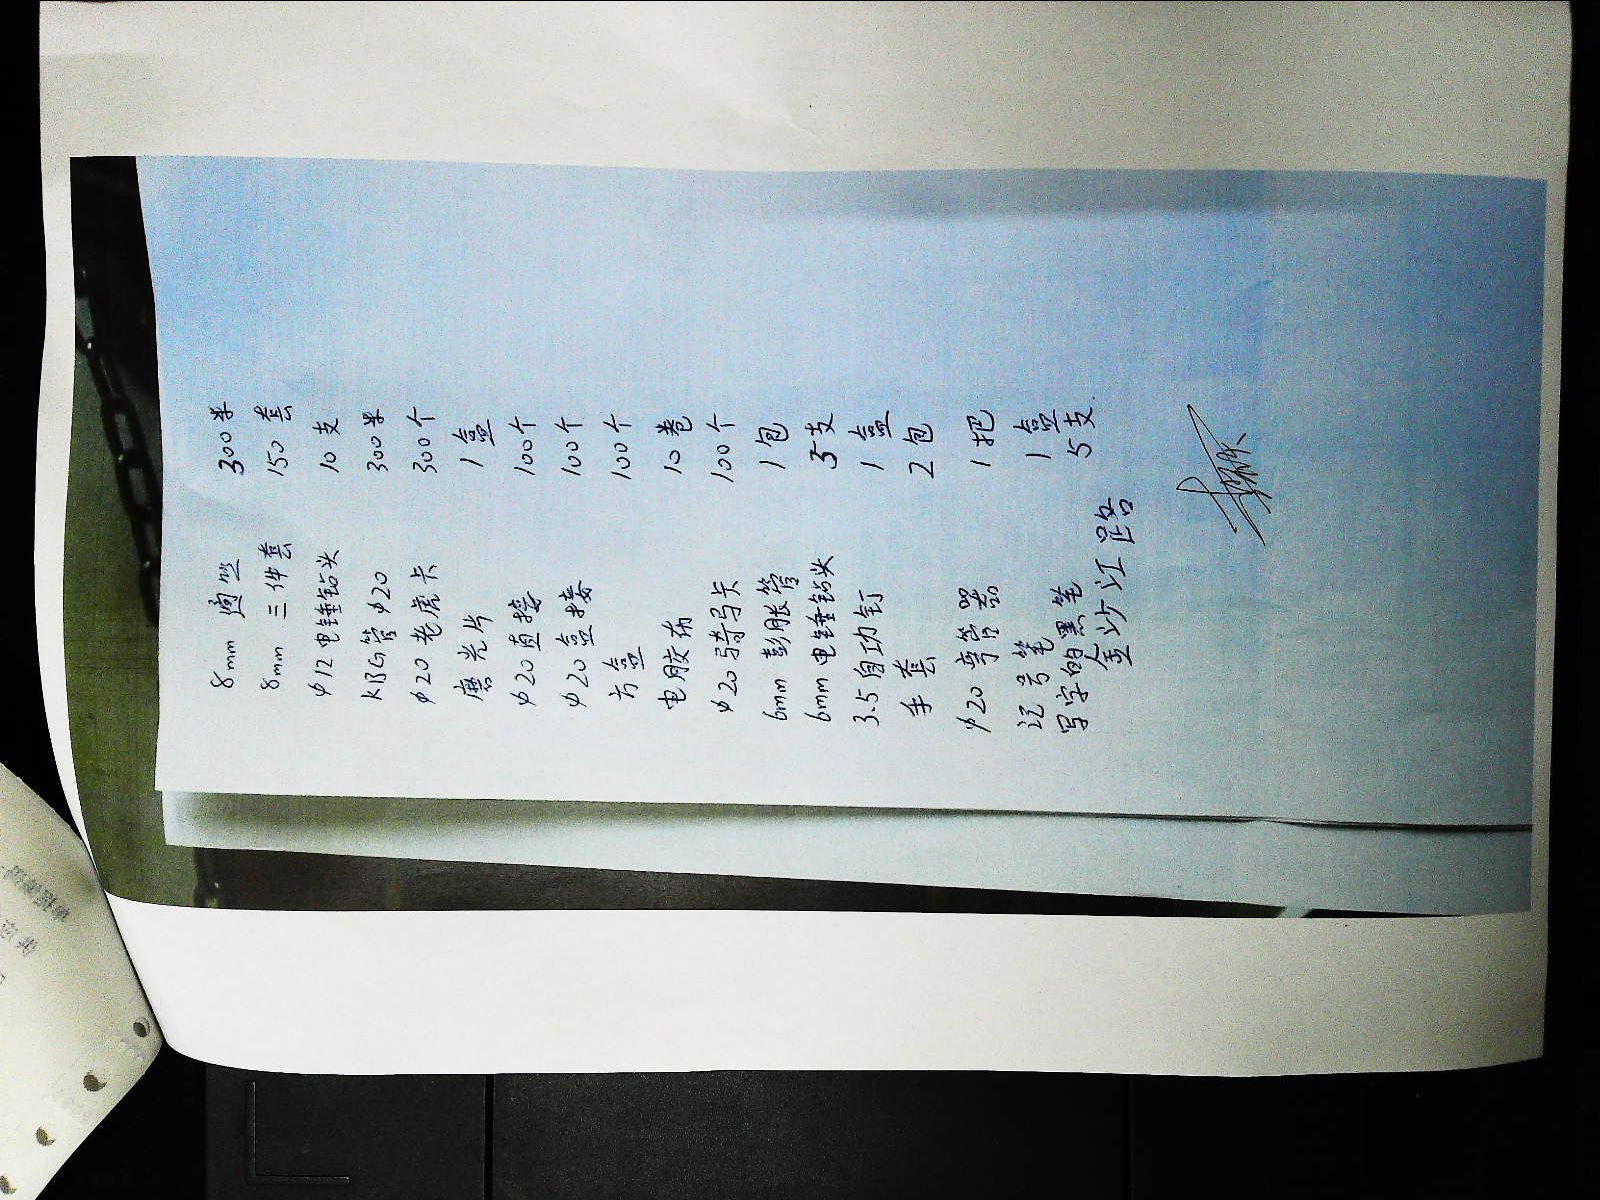 8mm 通丝 300米
8mm 三件套 150套
φ12电锤钻头 10支
KBG管φ20 300米
φ20老虎卡 300个
磨光片 1盒
φ20直接 100个
φ20盒接 100个
方盒 100个
电胶布 10卷
φ20骑马卡 100个
6mm 彭胀管 1包
6mm电锤钻头 5支
3.5自功钉 1盒
手套 2包
φ20弯管器 1把
记号笔 1盒
写字的黑笔 5支
金沙江路